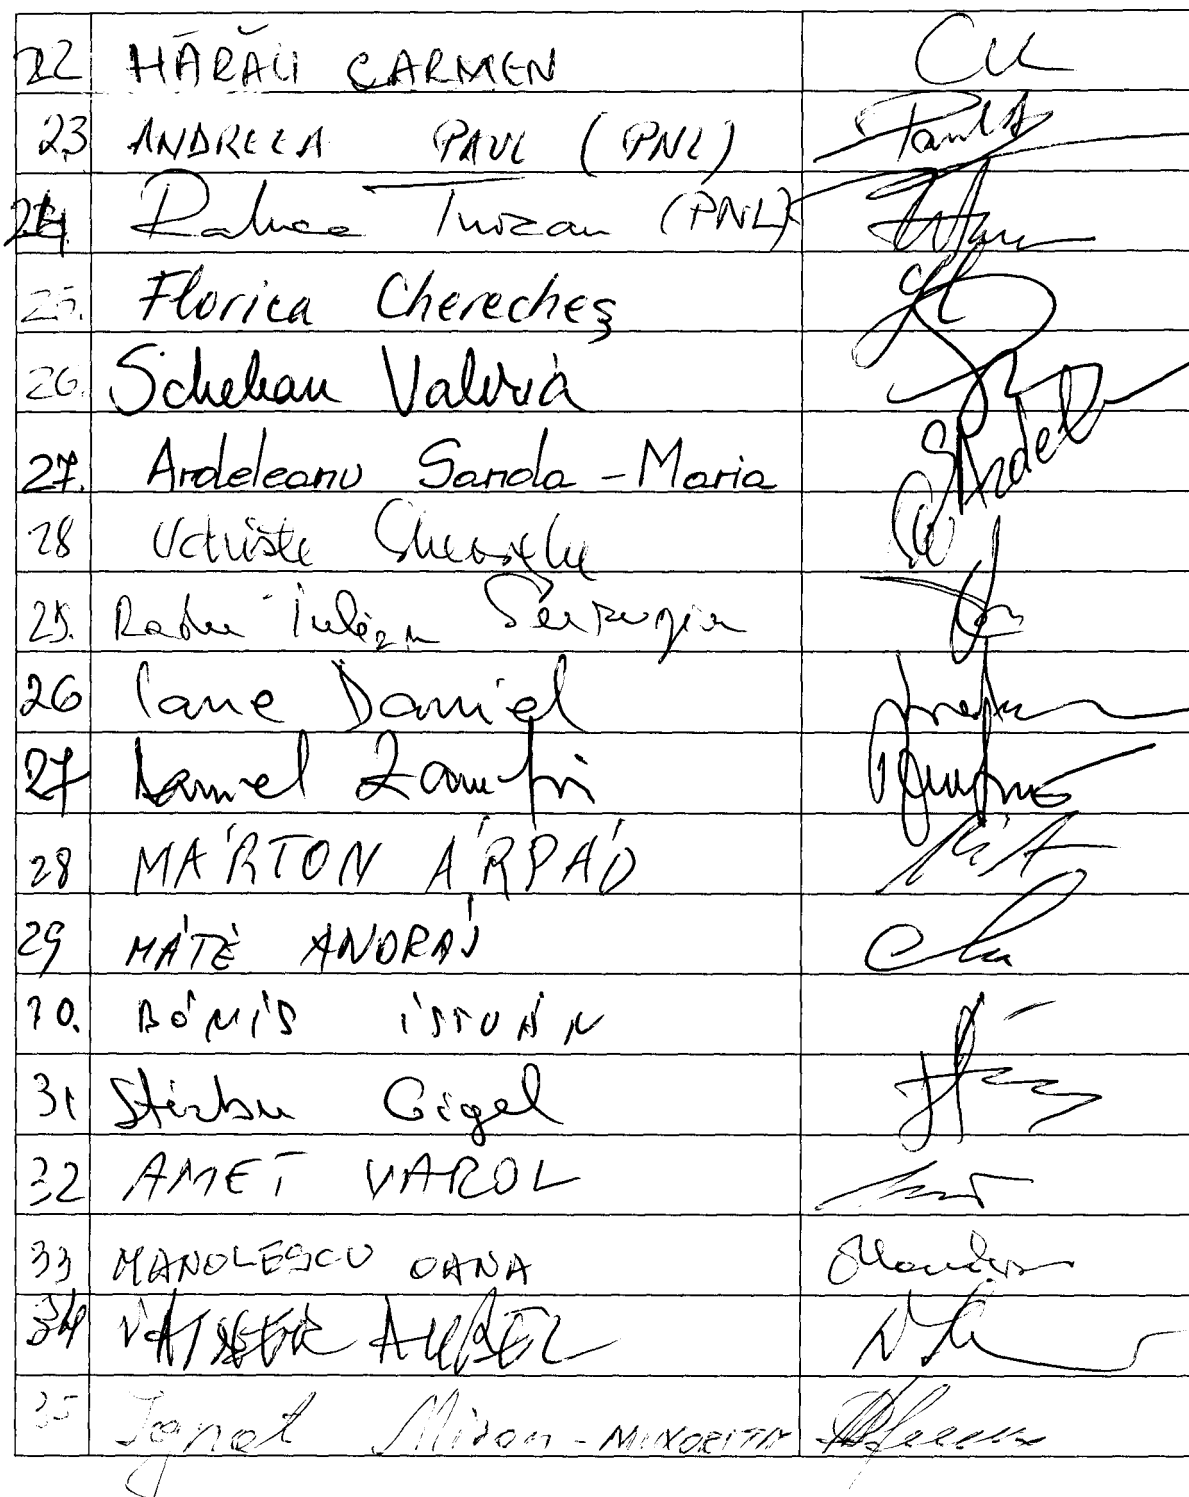 22 HĂRĂU CARMEN
23 ANDREEA PAUL (PNL) Paul A
24. Raluca Turcan (PNL)
25. Florica Cherecheș
26. Schelean Valeria
27. Ardeleanu Sanda-Maria SArdel
28 Udriște Gheorghe
25. Radu Iulian
26 Oane Daniel
27 Daniel Zamfir
28 MÁRTON ÁRPÁD
29 MÁTÉ ANDRÁS
30. BÓNIS ISTVÁN
31 Știrbu Gigel
32 AMET VAROL
33 MANOLESCU OANA
34 VAINER AUREL
35 Ignat Miron - MINORITĂ